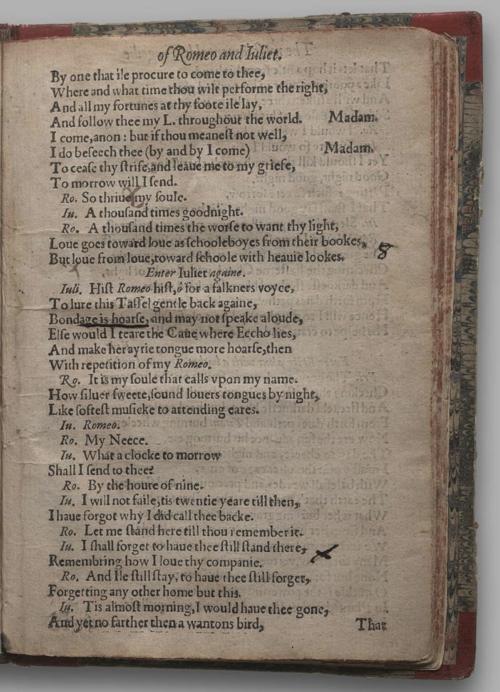 of Romeo and Iuliet.
By one that ile procure to come to thee,
Where and what time thou wilt performe the right,
And all my fortunes at thy foote ile lay,
And follow thee my L. throughout the world. Madam.
I come, anon: but if thou meaneſt not well,
I do beſeech thee (by and by I come) Madam.
To ceaſe thy ſtrife, and leaue me to my griefe,
To morrow will I ſend.
Ro. So thriue my ſoule.
Iu. A thouſand times goodnight.
Ro. A thouſand times the worſe to want thy light,
Loue goes toward loue as ſchooleboyes from their bookes,
But loue from loue, toward ſchoole with heauie lookes. 8
Enter Iuliet againe.
Iuli. Hiſt Romeo hiſt, ô for a falkners voyce,
To lure this Taſſel gentle back againe,
Bondage is hoarſe, and may not ſpeake aloude,
Elſe would I teare the Caue where Eccho lies,
And make her ayrie tongue more hoarſe, then
With repetition of my Romeo.
Ro. It is my ſoule that calls vpon my name.
How ſiluer ſweete, ſound louers tongues by night,
Like ſofteſt muſicke to attending eares.
Iu. Romeo.
Ro. My Neece.
Iu. What a clocke to morrow
Shall I ſend to thee?
Ro. By the houre of nine.
Iu. I will not faile, tis twentie yeare till then,
I haue forgot why I did call thee backe.
Ro. Let me ſtand here till thou remember it.
Iu. I ſhall forget to haue thee ſtill ſtand there,
Remembring how I loue thy companie.
Ro. And Ile ſtill ſtay, to haue thee ſtill forget,
Forgetting any other home but this.
Iu. Tis almoſt morning, I would haue thee gone,
And yet no farther then a wantons bird,
That